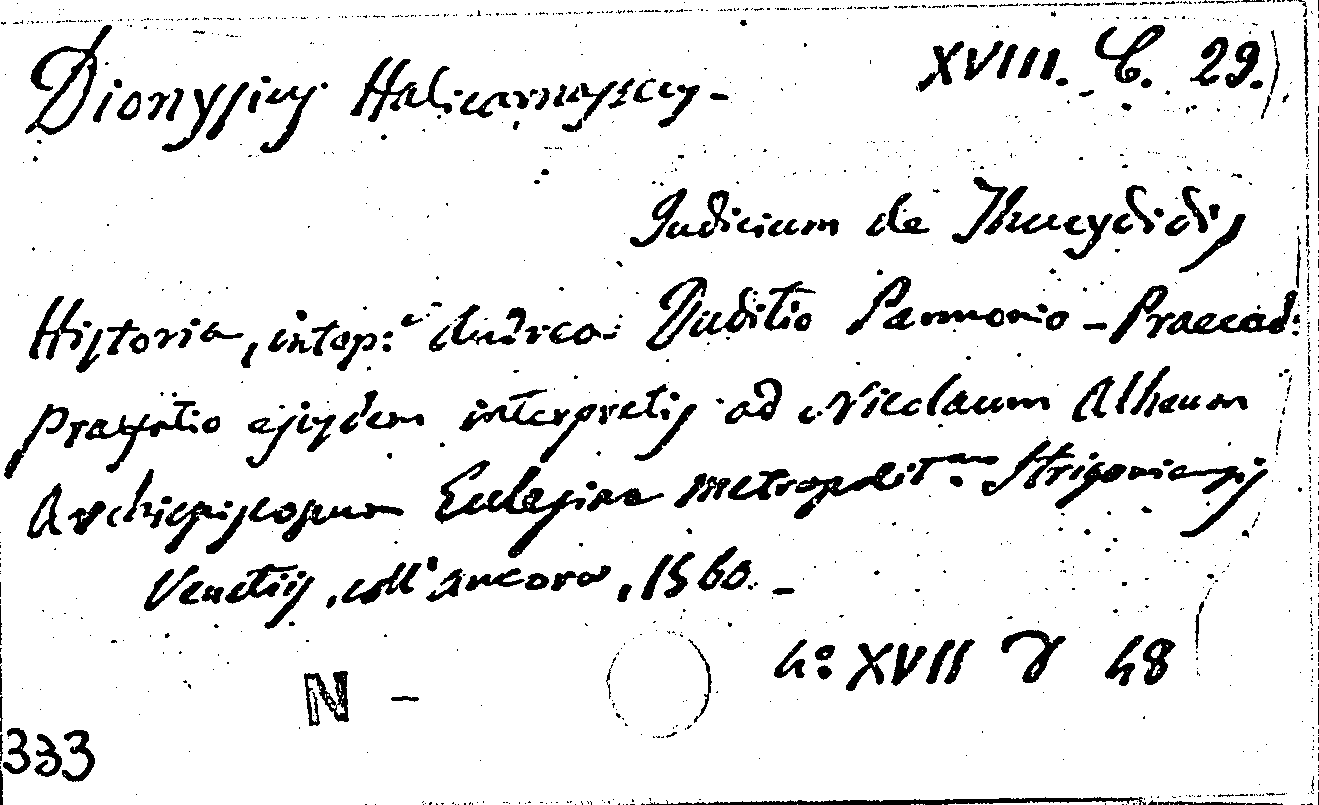 Dionysius Halicarnasseus - XVIII. C. 29.
Judicium de Thucydidis
Historia, interp:e Andrea Duditio Pannonio - Praeced:
Praefatio ejusdem interpretis ad Nicolaum Olhaum
Archiepiscopum Eclesiae metropolit:am Strigoniensis
Venetiis, coll'ancora, 1560. -
4:o XVII D 48
N -
333